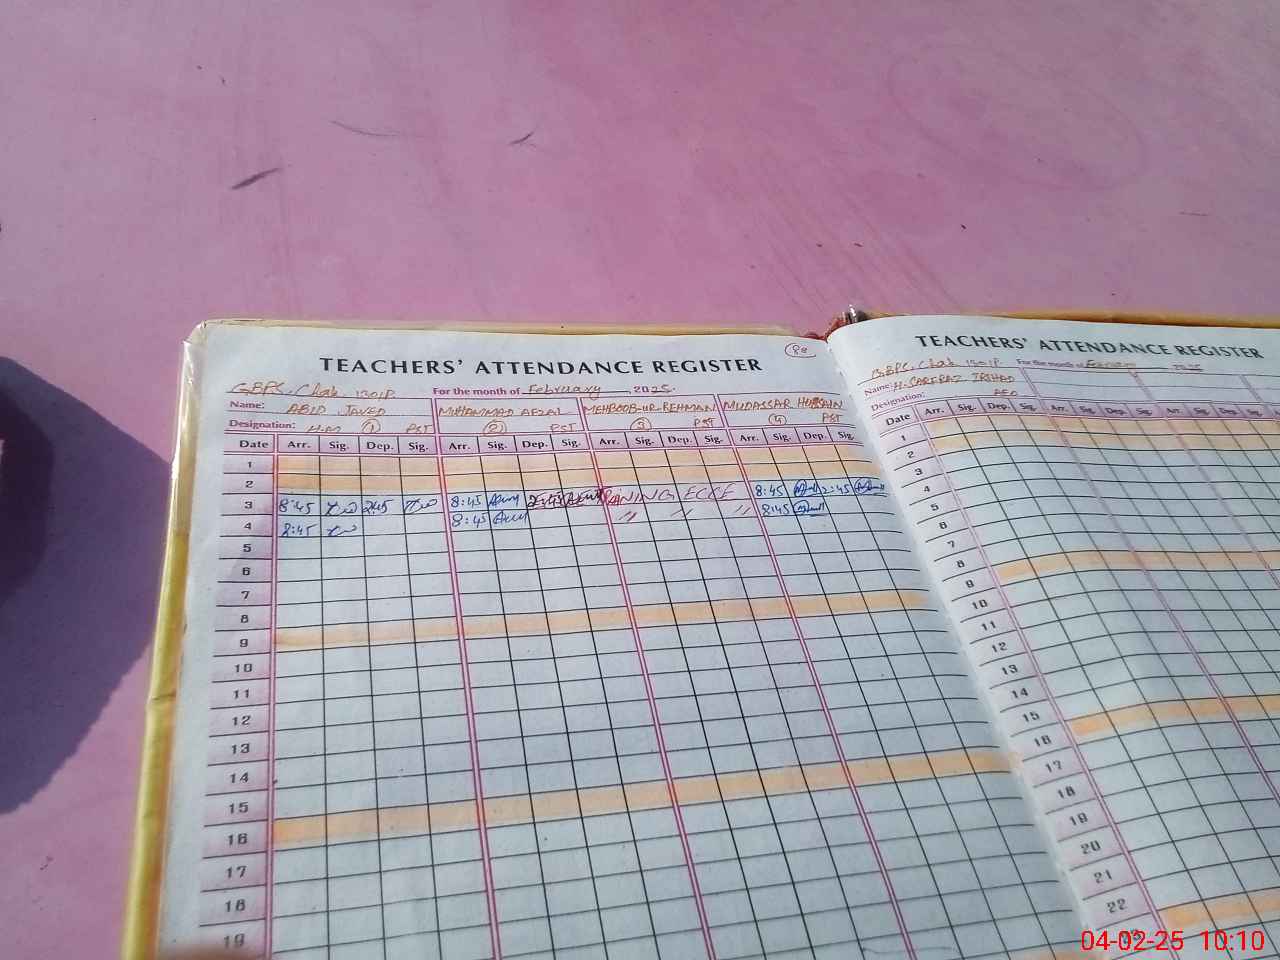 82
TEACHERS' ATTENDANCE REGISTER
GBPS. Chak. 130/P. For the month of February 2025.
Name: ABID JAVED MUHAMMAD AFZAL MEHBOOB-UR-REHMAN MUDASSAR HUSSAIN
Designation: H.M (1) PST (2) PST (3) PST (4) PST
Date Arr. Sig. Dep. Sig. Arr. Sig. Dep. Sig. Arr. Sig. Dep. Sig. Arr. Sig. Dep. Sig.
1
2
3 8:45 2:45 8:45 2:45 ECKE 8:45 2:45
4 8:45 8:45 " " " 8:45
5
6
7
8
9
10
11
12
13
14
15
16
17
18
19
TEACHERS' ATTENDANCE REGISTER
GBPS. Chak 130/P For the month of February 2025
Name: M. SARFRAZ IRSHAD
Designation: AEO
Date Arr. Sig. Dep. Sig. Arr. Sig. Dep. Sig. Arr. Sig.
1
2
3
4
5
6
7
8
9
10
11
12
13
14
15
16
17
18
19
20
21
22
04-02-25 10:10